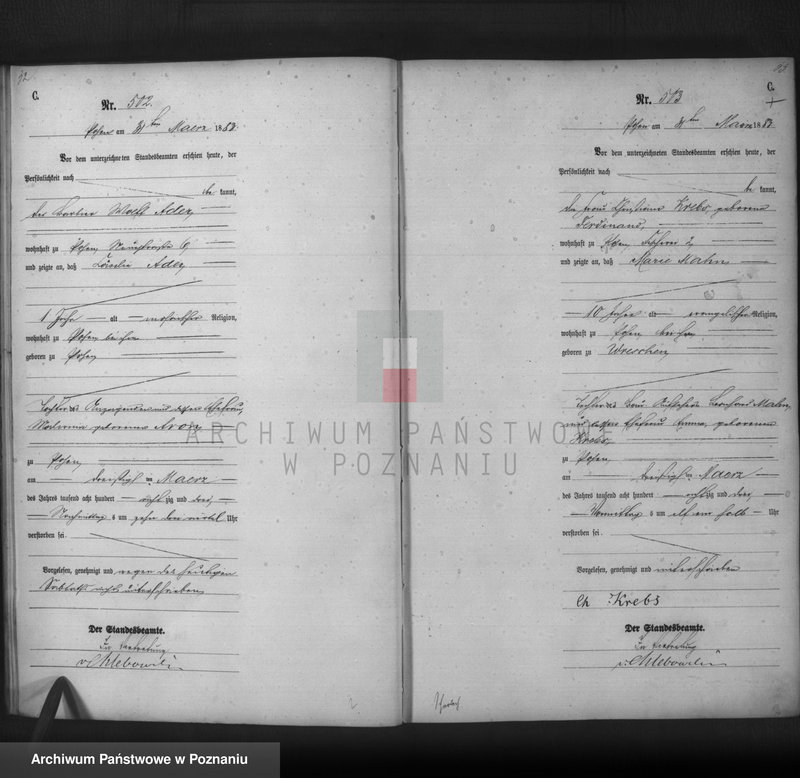 92
C.
Nr. 502.
Posen am 31ten Maerz 1883.
Vor dem unterzeichneten Standesbeamten erschien heute, der
Persönlichkeit nach
be kannt,
der Wolff Ader
wohnhaft zu Posen,
und zeigte an, daß Ader
1 Jahr alt mosaischer Religion,
wohnhaft zu Posen bei ihm
geboren zu Posen,
Tochter des Anzeigenden und dessen Ehefrau,
geborenen
zu Posen,
am dreißigsten Maerz
des Jahres tausend acht hundert achtzig und drei,
Nachmittag s um zehn drei viertel Uhr
verstorben sei.
Vorgelesen, genehmigt und wegen des heutigen
Sabbaths nicht unterschrieben
Der Standesbeamte.
In Vertretung
93
C.
Nr. 503
Posen am 31ten Maerz 1883.
Vor dem unterzeichneten Standesbeamten erschien heute, der
Persönlichkeit nach
be kannt,
die Frau Christiane Krebs, geborene
Ferdinand,
wohnhaft zu Posen, Fischerei 2,
und zeigte an, daß Marie Mahn
10 Jahre alt evangelischer Religion,
wohnhaft zu Posen bei ihr,
geboren zu Wreschen,
Tochter des Bernhard Mahn,
und dessen Ehefrau Emma, geborenen
Krebs,
zu Posen,
am dreißigsten Maerz
des Jahres tausend acht hundert achtzig und drei,
Vormittag s um elf ein halb Uhr
verstorben sei.
Vorgelesen, genehmigt und unterschrieben
Ch Krebs
Der Standesbeamte.
In Vertretung
ARCHIWUM PAŃSTWOWE
W POZNANIU
Archiwum Państwowe w Poznaniu